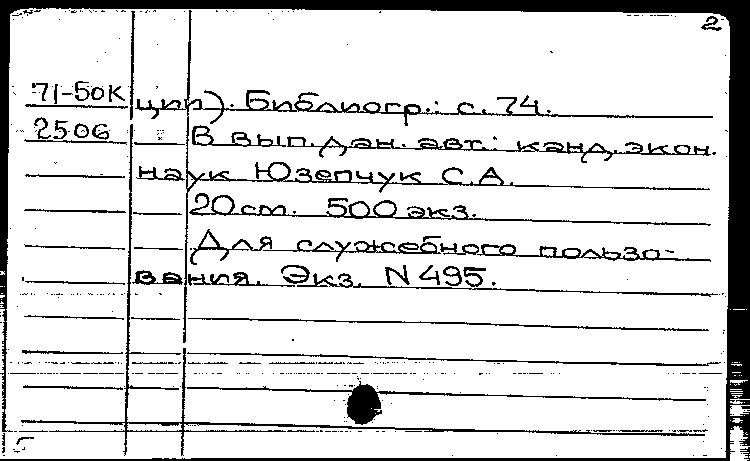 2
71-50К ции). Библиогр.: с. 74.
2506 В вып. дан. авт.: канд. экон.
наук Юзепчук С.А.
20 см. 500 экз.
Для служебного пользо-
вания. Экз. N 495.
5